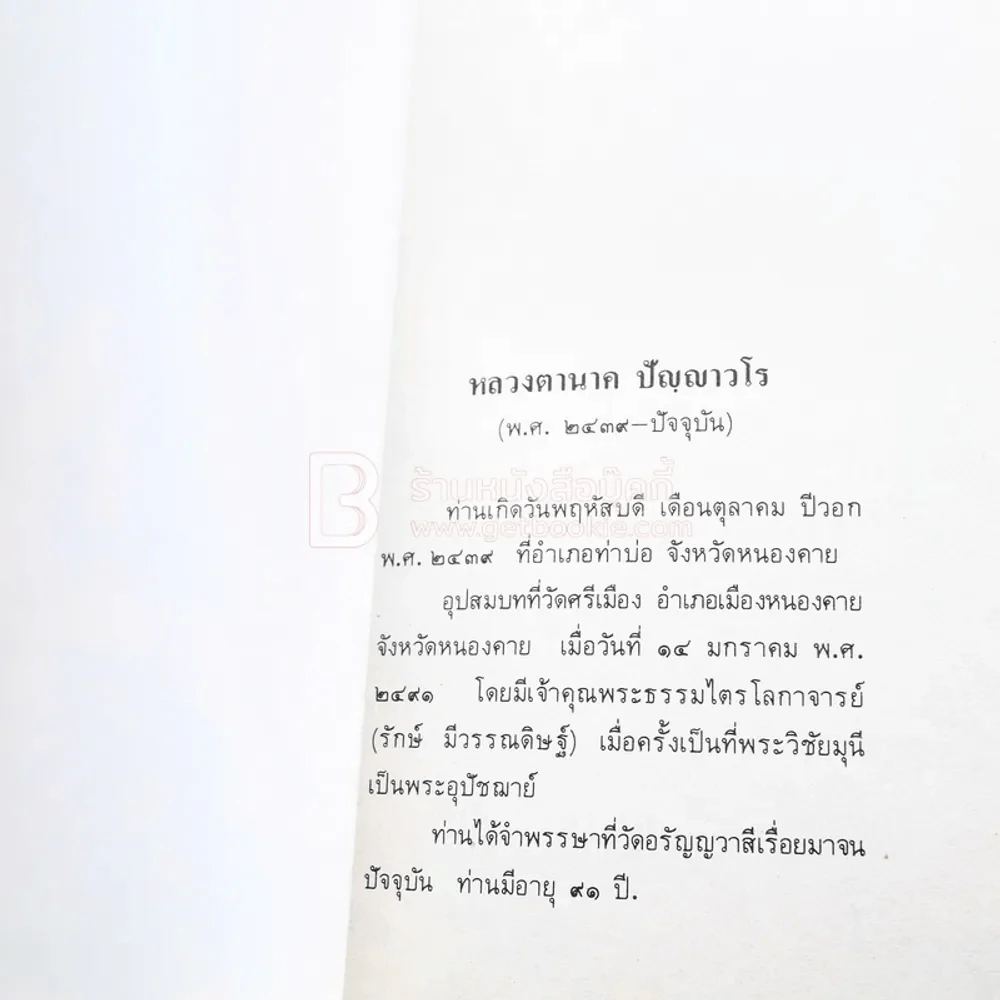 หลวงตานาค ปัญญาวโร
(พ.ศ. ๒๔๓๙-ปัจจุบัน)
ร้านหนังสือบุ๊คกี้
www.getbookie.com
ท่านเกิดวันพฤหัสบดี เดือนตุลาคม ปีวอก
พ.ศ. ๒๔๓๙ ที่อำเภอท่าบ่อ จังหวัดหนองคาย
อุปสมบทที่วัดศรีเมือง อำเภอเมืองหนองคาย
จังหวัดหนองคาย เมื่อวันที่ ๑๔ มกราคม พ.ศ.
๒๔๙๑ โดยมีเจ้าคุณพระธรรมไตรโลกาจารย์
(รักษ์ มีวรรณดิษฐ์) เมื่อครั้งเป็นที่พระวิชัยมุนี
เป็นพระอุปัชฌาย์
ท่านได้จำพรรษาที่วัดอรัญญวาสีเรื่อยมาจน
ปัจจุบัน ท่านมีอายุ ๙๑ ปี.